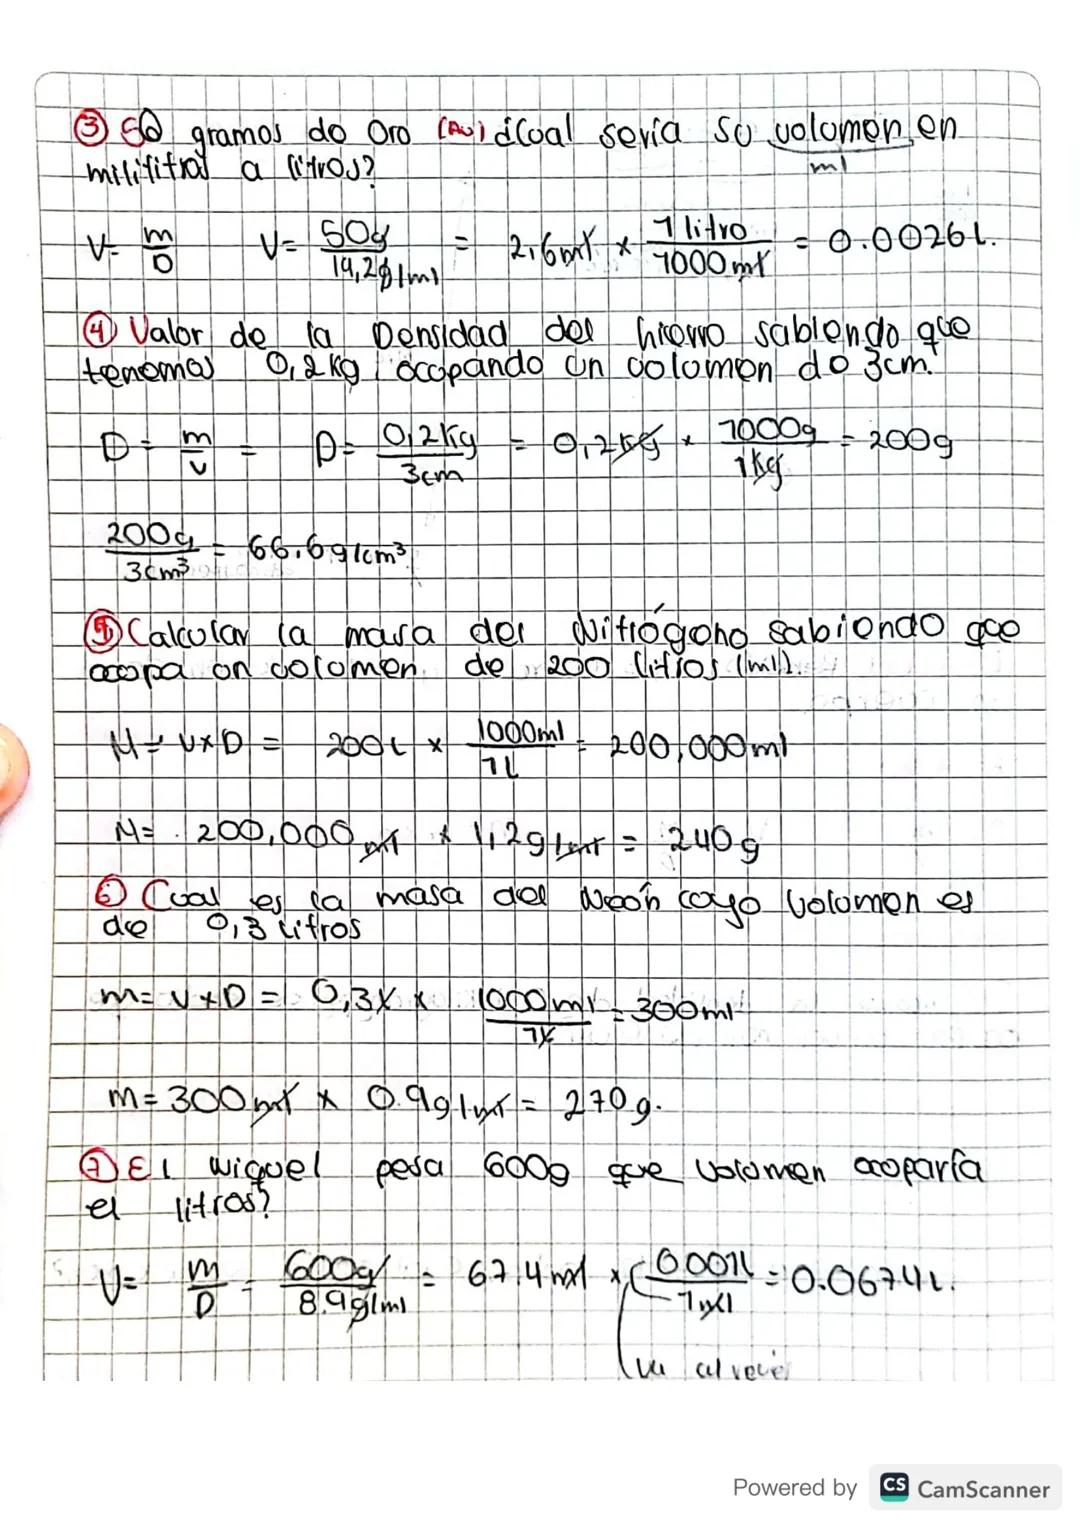 ③ 50 gramos de Oro (Au) ¿Cual sería su volumen en
mililitros a litros? ml
V= m/D V= 50g/19,2g/ml = 2,6ml x 1 litro/1000ml = 0.0026L.
④ Valor de la Densidad del hierro sabiendo que
tenemos 0,2kg ocupando un volumen de 3cm.
D= m/v = D= 0,2Kg/3cm = 0,2kg x 1000g/1Kg = 200g
200g/3cm³ = 66.6g/cm³
⑤ Calcular la masa del Nitrógeno sabiendo que
ocupa un volumen de 200 litros (ml).
M= VxD = 200L x 1000ml/1L = 200,000ml
M= 200,000ml x 1,2g/ml = 240g
⑥ Cual es la masa del Neón cuyo Volumen es
de 0,3 Litros
m= VxD = 0,3L x 1000ml/1L = 300ml
m= 300ml x 0.9g/ml = 270g.
⑦ El niquel pesa 600g que volumen ocuparía
el litros?
V= m/D = 600g/8.9g/ml = 67.4ml x (0.001L/1ml = 0.0674L.
Powered by CS CamScanner